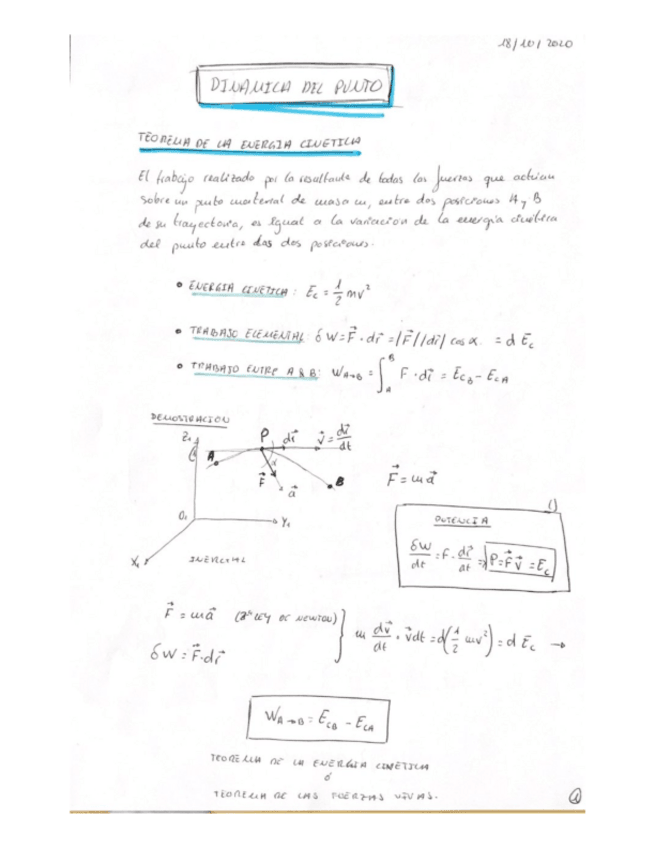 18/10/2020
DINAMICA DEL PUNTO
TEOREMA DE LA ENERGIA CINETICA
El trabajo realizado por la resultante de todas las fuerzas que actuan
sobre un punto material de masa m, entre dos posiciones A y B
de su trayectoria, es igual a la variacion de la energia cinetica
del punto entre das dos posiciones.
• ENERGIA CINETICA: Ec = 1/2 mv²
• TRABAJO ELEMENTAL: δW = F⃗ · dr⃗ = |F⃗| |dr⃗| cos α = d Ec
• TRABAJO ENTRE A & B: W A→B = ∫_A^B F · dr⃗ = EcB − EcA
DEMOSTRACION
Z₁ P dr⃗ v⃗ = dr⃗/dt
A α
F⃗ a⃗ B
F⃗ = m a⃗
O₁ Y₁
X₁ INERCIAL
POTENCIA
δW/dt = F · dr⃗/dt ⇒ P = F⃗ v⃗ = Ec
F⃗ = m a⃗ (2ª LEY DE NEWTON)
δW = F⃗ · dr⃗
m dv⃗/dt · v⃗ dt = d(1/2 mv²) = d Ec →
W A→B = EcB − EcA
TEOREMA DE LA ENERGIA CINETICA
ó
TEOREMA DE LAS FUERZAS VIVAS.
1